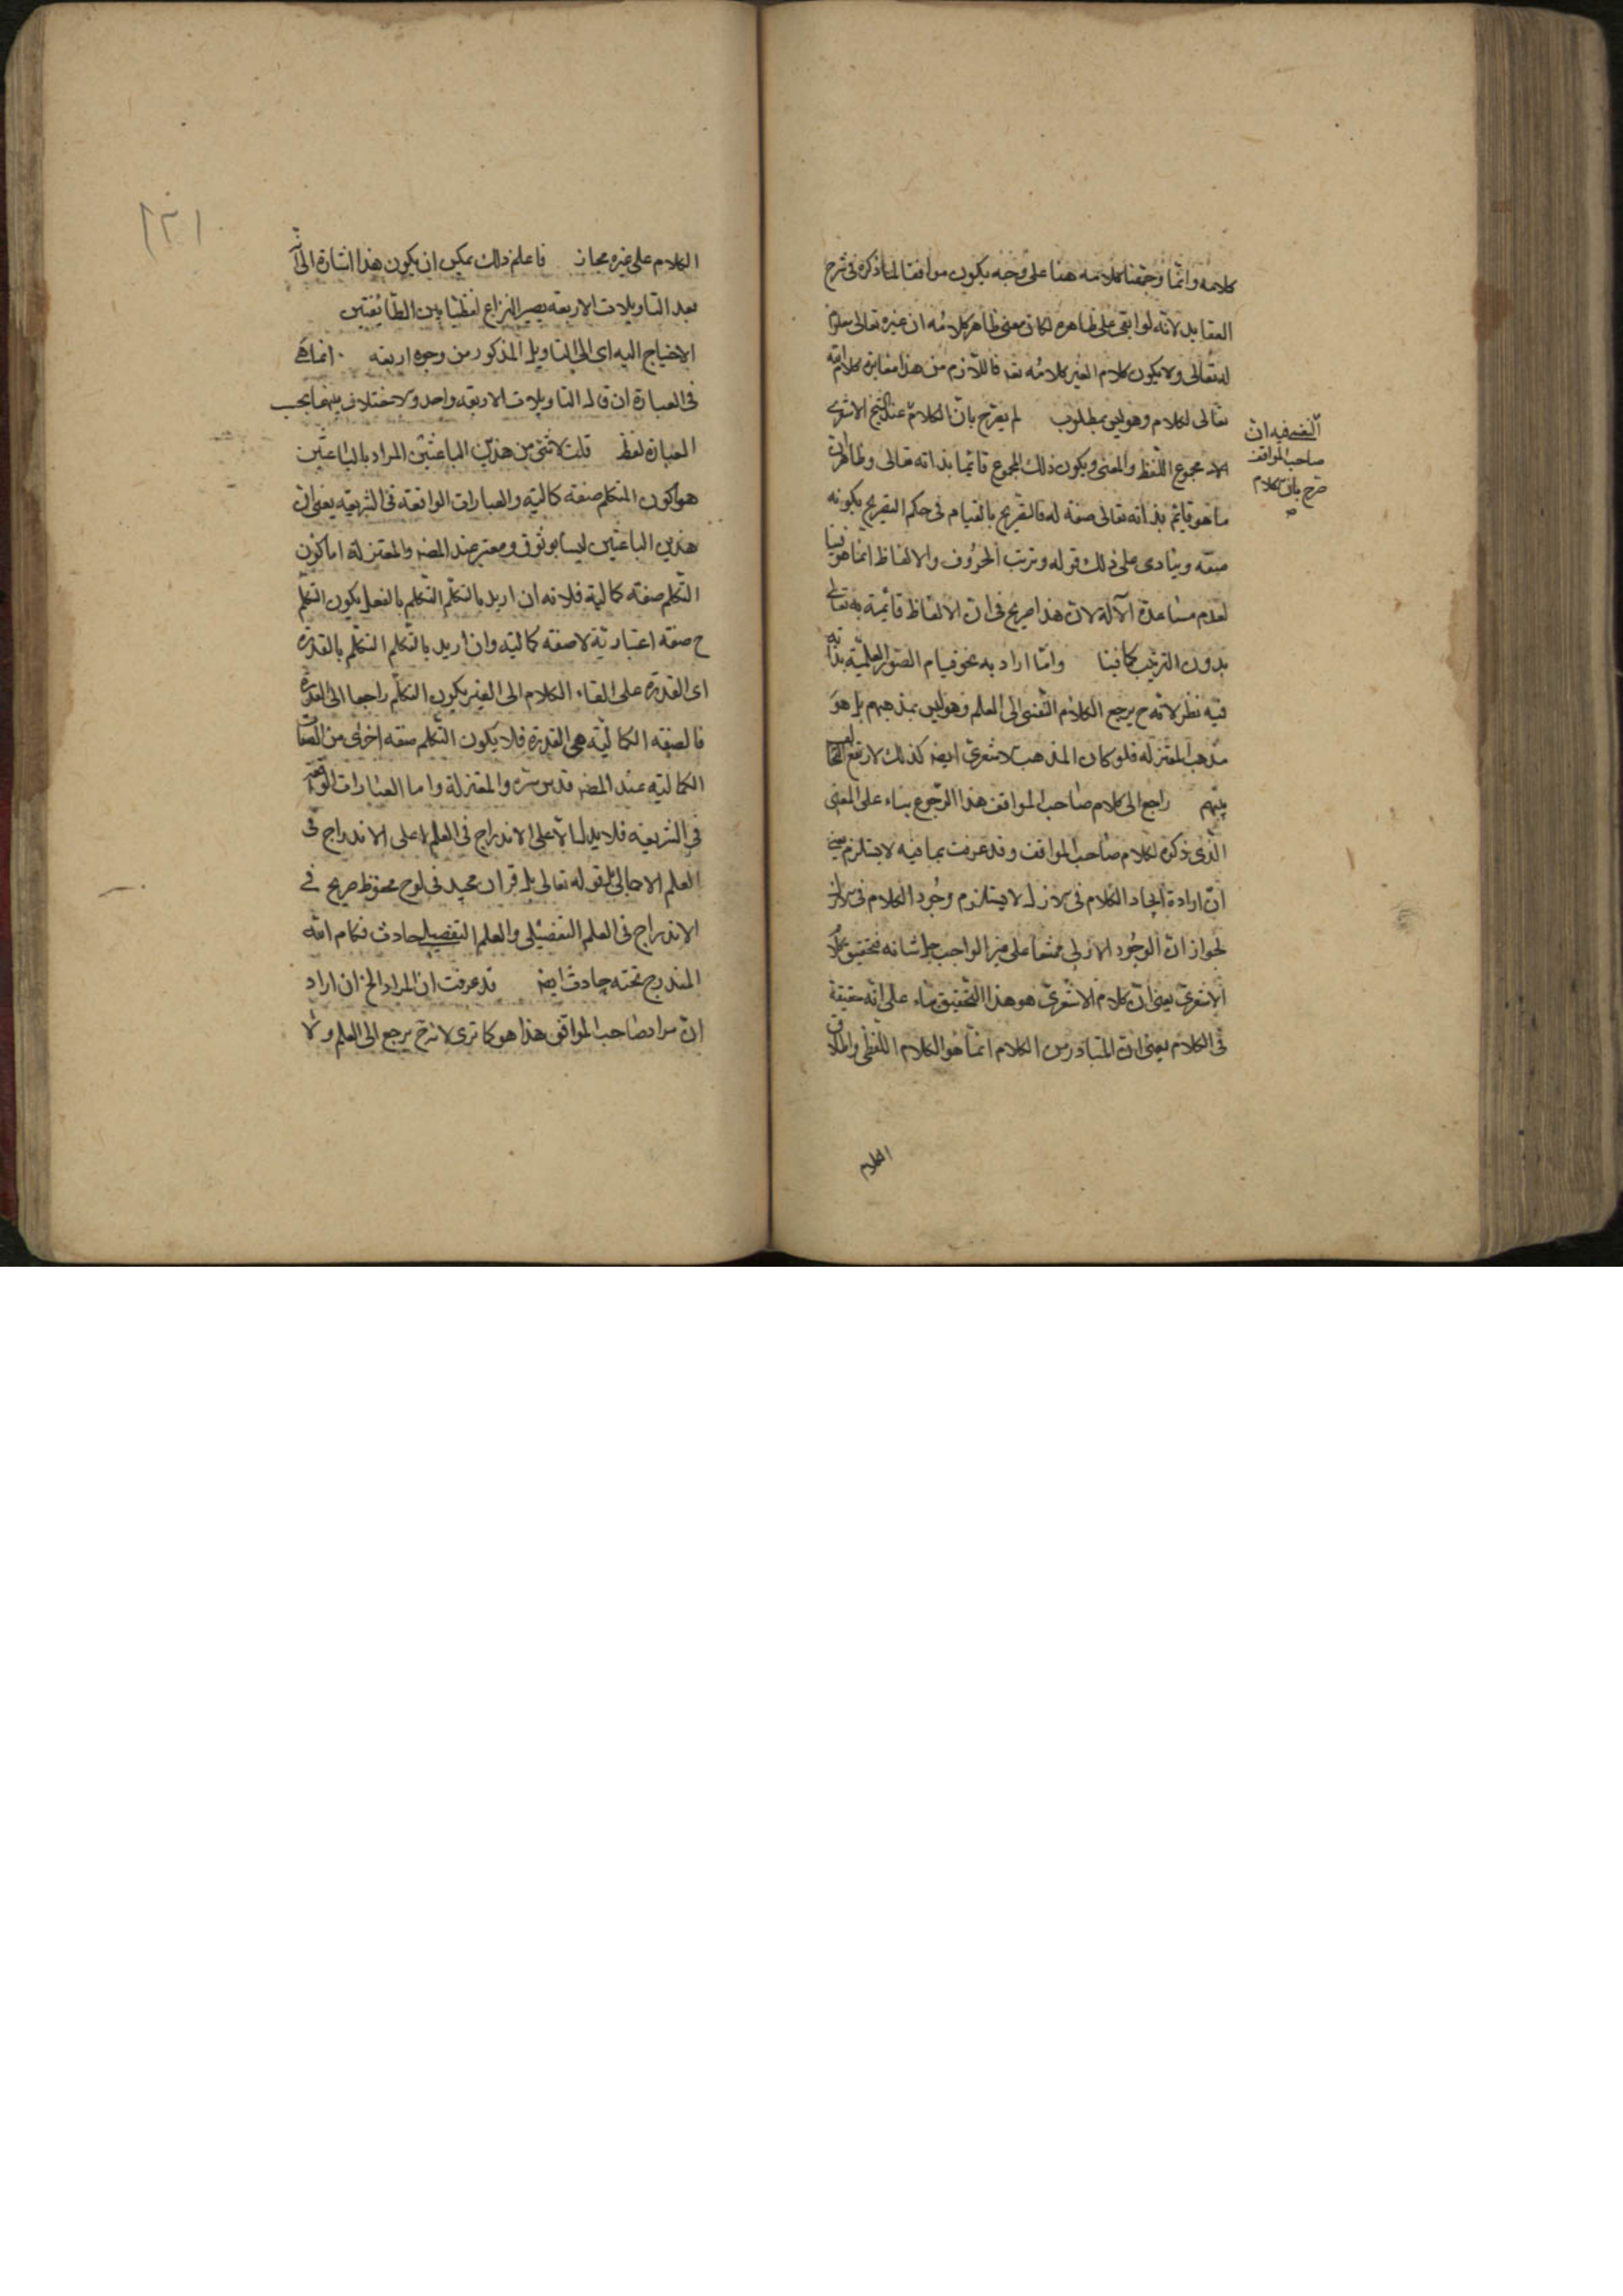 كلامه وانما وجهنا كلامه هنا على وجه يكون موافقا لما ذكره فى شرح
العقايد لانه لو ابقى على ظاهره لكان معنى ظاهر كلامه ان غيره تعالى
له تعالى ولا يكون كلام الغير كلامه نفسه فاللازم من هذا مغايرة كلامه
تعالى لكلام وهو ليس بمطلوب لم يصرح بان الكلام عند الشيخ الاشعرى
مجموع اللفظ والمعنى ويكون ذلك المجموع قائما بذاته تعالى وظاهر ان
ما هو قايم بذاته تعالى صفة له فالتصريح بالقيام فى حكم التصريح بكونه
صفة وينادى على ذلك قوله وترتب الحروف والالفاظ انما هو فينا
لعدم مساعدة الآلة لان هذا صريح فى ان الالفاظ قائمة به تعالى
بدون الترتيب كما فينا واما اراد به نحو قيام الصور العلمية بذاته
فيه نظر لانه ح يرجع الكلام النفسى الى العلم وهو ليس بمذهبهم بل هو
مذهب المعتزلة فلو كان المذهب الاشعرى ايضا كذلك لارتفع
بينهم راجع الى كلام صاحب المواقف هذا الرجوع بناء على المعنى
الذى ذكره لكلام صاحب المواقف وقد عرفت بما فيه لا يستلزم يعنى
ان ارادة ايجاد الكلام فى الازل لا يستلزم وجود الكلام فى الازل
لجواز ان الوجود الازلى ممتنعا على غير الواجب جل شانه فتحقيق كلام
الاشعرى يعنى ان كلام الاشعرى هو هذا التحقيق بناء على انه حقيقة
فى الكلام يعنى ان المتبادر من الكلام انما هو الكلام اللفظى واطلاق
الكلام
فيه ان
صاحب المواقف
صرح بان الكلام
١٢١
الكلام على غيره مجاز فاعلم ذلك يمكن ان يكون هذا اشارة الى انه
بعد التاويلات الاربعة يصير النزاع لفظيا بين الطائفتين
الاحتياج اليه اى الى التاويل المذكور من وجوه اربعة انما هى
فى العبارة ان قال التاويلات الاربعة واحد والاختلاف بينهما بحسب
العبارة لفظ قلت لا شئ من هذين الباعثين المراد بالباعثين
هو كون المتكلم صفة كمالية والعبارات الواقعة فى الشريعة يعنى ان
هذين الباعثين ليسا بوثوق ومعتبر عند المصـ والمعتزلة اما كون
التكلم صفة كمالية فلانه ان اريد بالتكلم التكلم بالفعل يكون التكلم
ح صفة اعتبارية لا صفة كمالية وان اريد بالتكلم التكلم بالقدرة
اى القدرة على القاء الكلام الى الغير يكون التكلم راجعا الى القدرة
فالصفة الكمالية هى القدرة فلا يكون التكلم صفة اخرى من الصفات
الكمالية عند المصـ قدس سره والمعتزلة واما العبارات الواقعة
فى الشريعة فلا يدل الا على الاندراج فى العلم لا على الاندراج فى
العلم الاجمالى بل قوله تعالى بل قران مجيد فى لوح محفوظ صريح فى
الاندراج فى العلم التفصيلى والعلم التفصيلى حادث فكلام الله
المندرج تحته حادث ايضا قد عرفت ان المراد الخ ان اراد
ان مراد صاحب المواقف هذا هو كما ترى لا نه ح يرجع الى العلم ولا